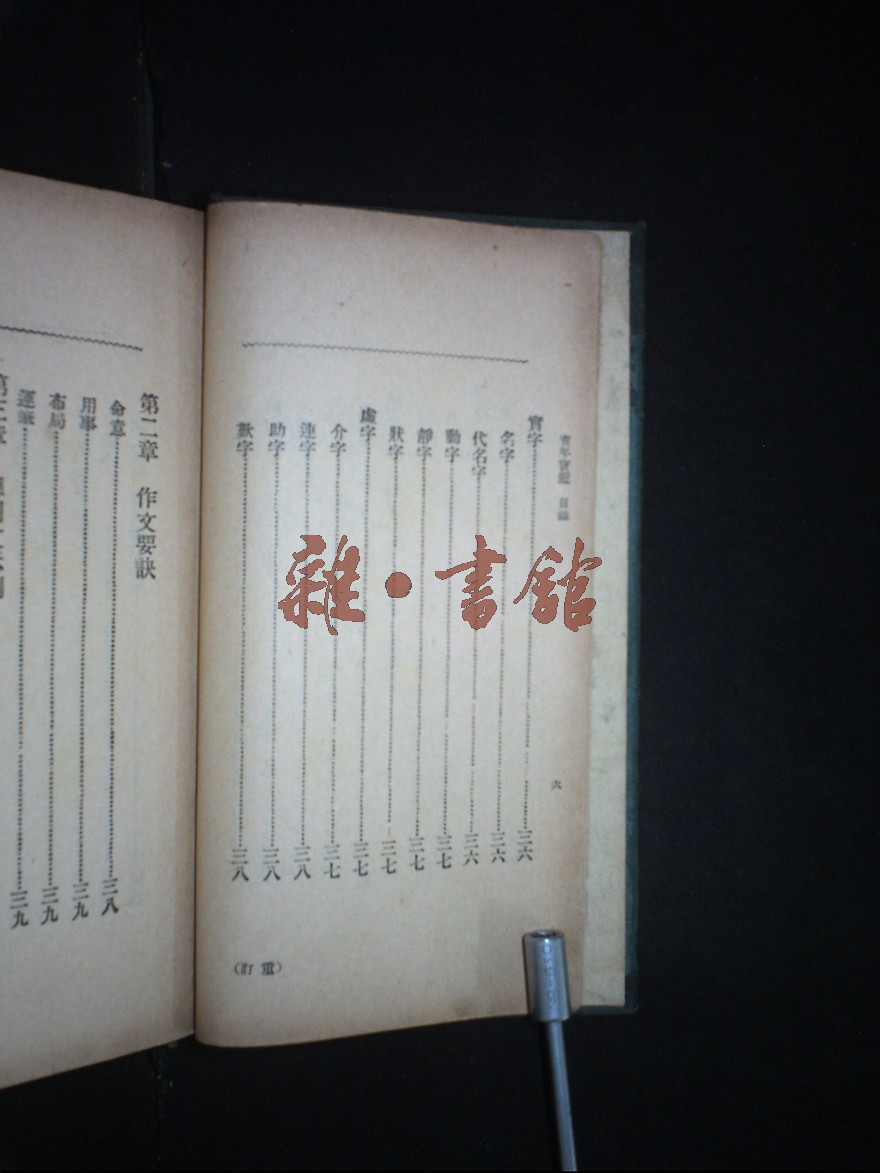 青年寶鑑 目錄
六
實字……三六
名字……三六
代名字……三六
動字……三七
靜字……三七
狀字……三七
虛字……三七
介字……三七
連字……三八
助字……三八
歎字……三八
（重訂）
第二章 作文要訣
命意……三八
用事……三九
布局……三九
運筆……三九
第三章
雜·書館